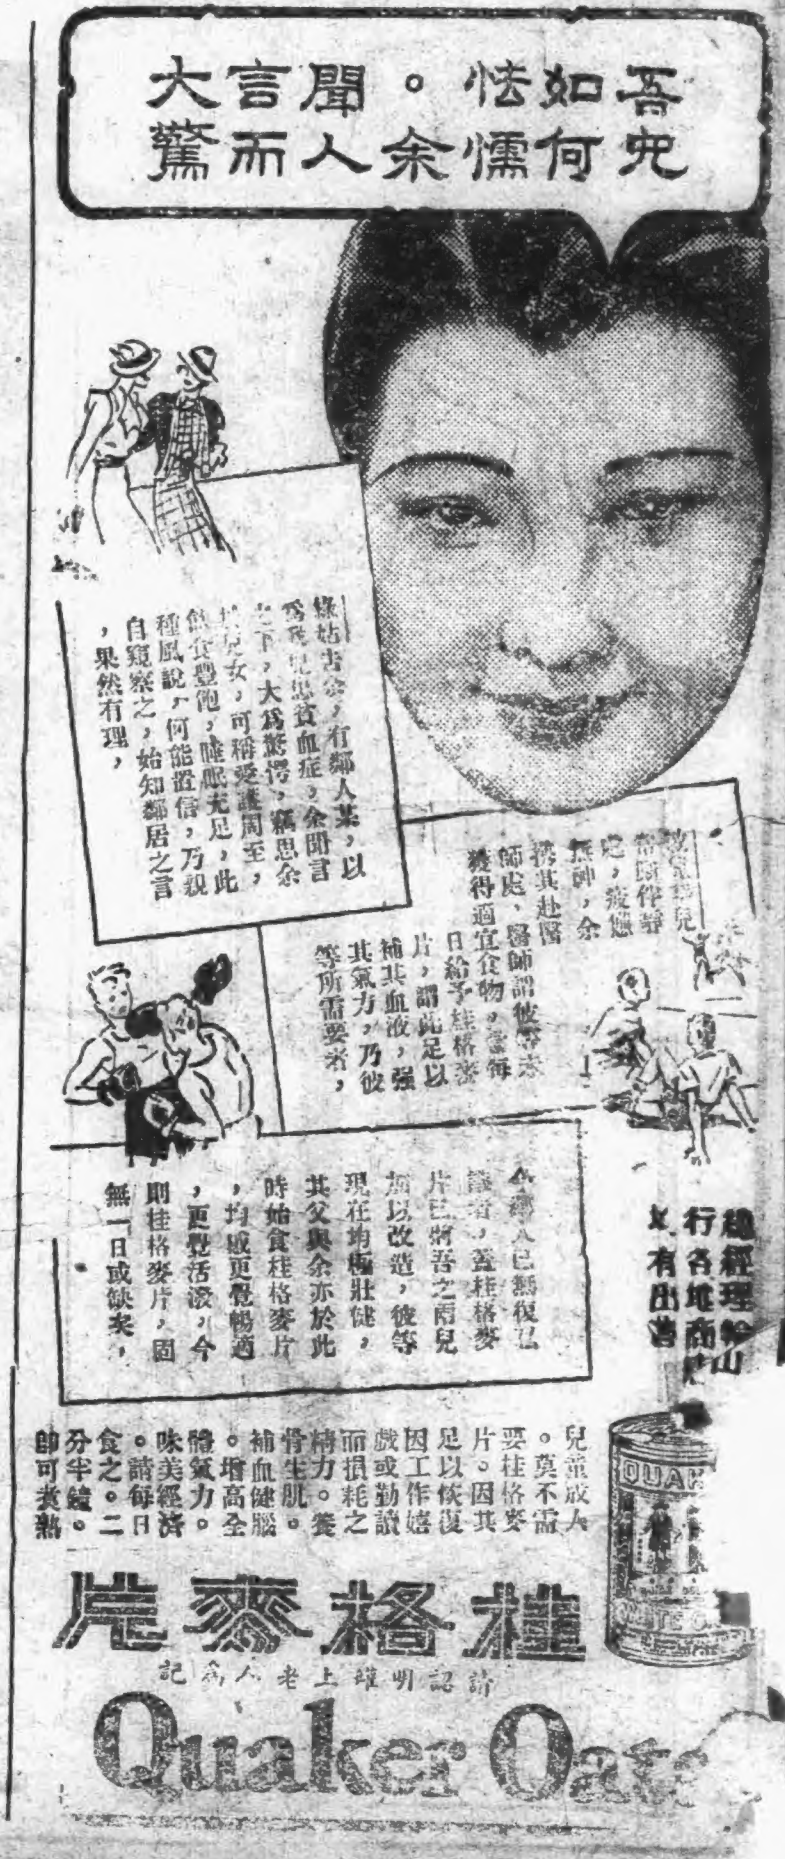 吾兒
如何
怯懦
。余
聞人
言而
大驚
告余，有鄰人某，以
為我兒患貧血症，余聞言
之下，大為驚愕，竊思余
兒女，可稱愛護周至，
飲食豐飽，睡眠充足，此
種風說，何能置信，乃親
自窺察之，始知鄰居之言
，果然有理，
處，疲憊
無神，余
携其赴醫
師處，醫師謂彼等未
獲得適宜食物，當每
日給予桂格麥
片，謂此足以
補其血液，强
其氣力，乃彼
等所需要者，
今鄰人已無復
者，蓋桂格麥
片已將吾之兩兒
加以改造，彼等
現在均極壯健，
其父與余亦於此
時始食桂格麥片
，均感更覺暢適
，更覺活潑，今
則桂格麥片，固
無一日或缺矣，
總經理
行各埠商店
均有出售
兒童成人
。莫不需
要桂格麥
片。因其
足以恢復
因工作嬉
戲或勤讀
而損耗之
精力。養
骨生肌。
補血健腦
。增高全
體氣力。
味美經濟
。請每日
食之。二
分半鐘。
即可煮熟
QUAK
WHITE O
桂格麥片
請認明罐上老人為記
Quaker Oats